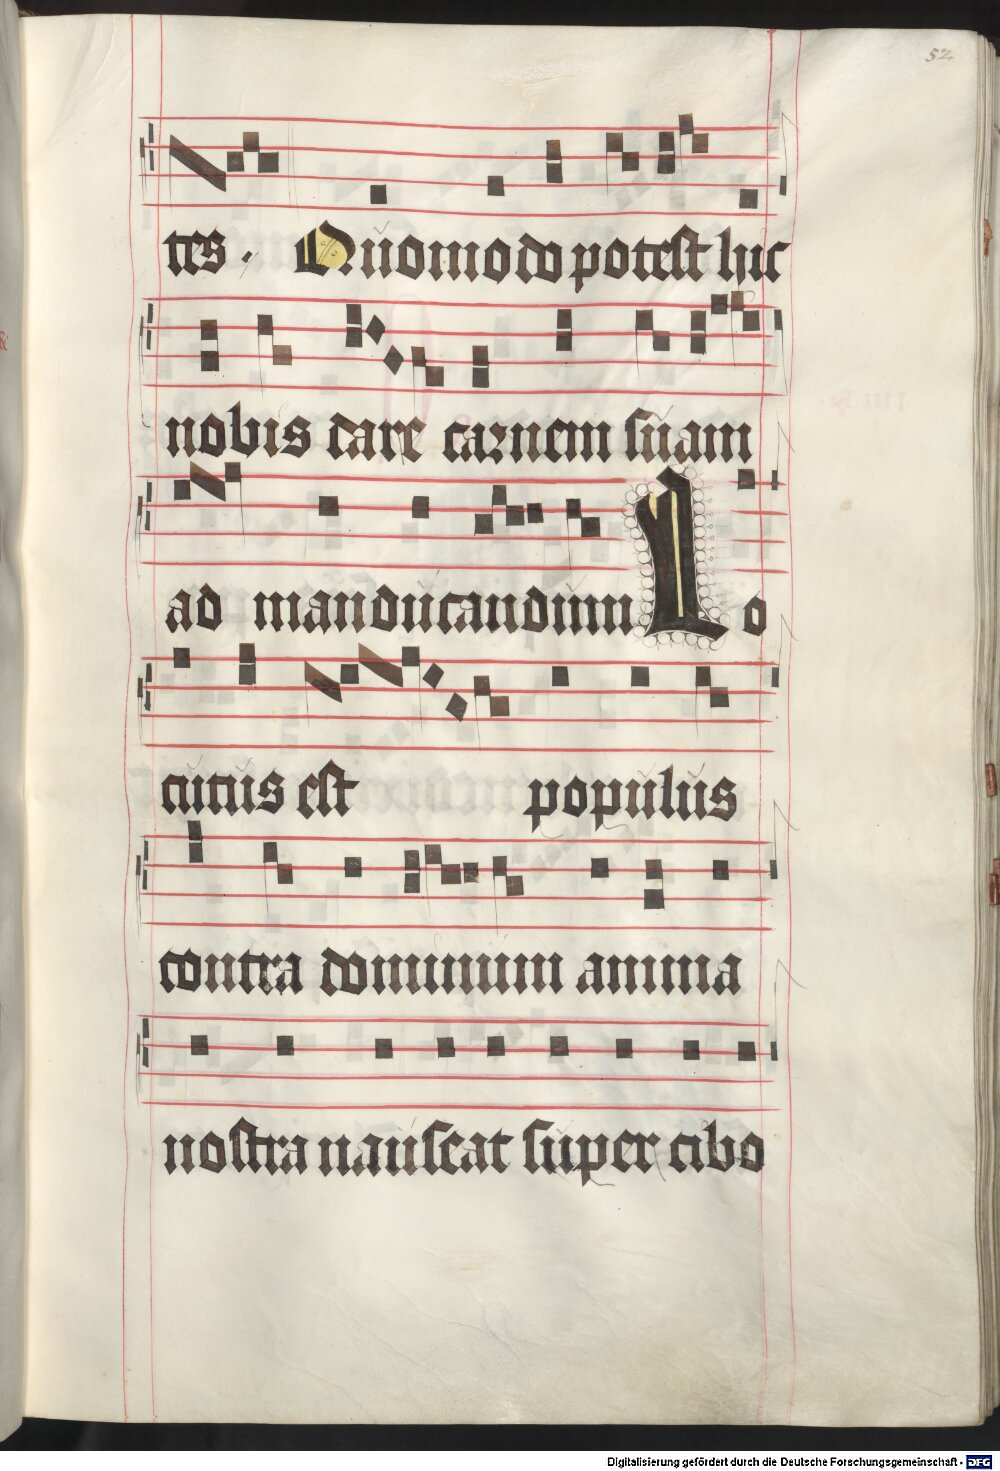 52
tes . Quomodo potest hic
nobis dare carnem suam
ad manducandum Lo
cutus est populus
contra dominum anima
nostra nauseat super cibo
Digitalisierung gefördert durch die Deutsche Forschungsgemeinschaft - DFG